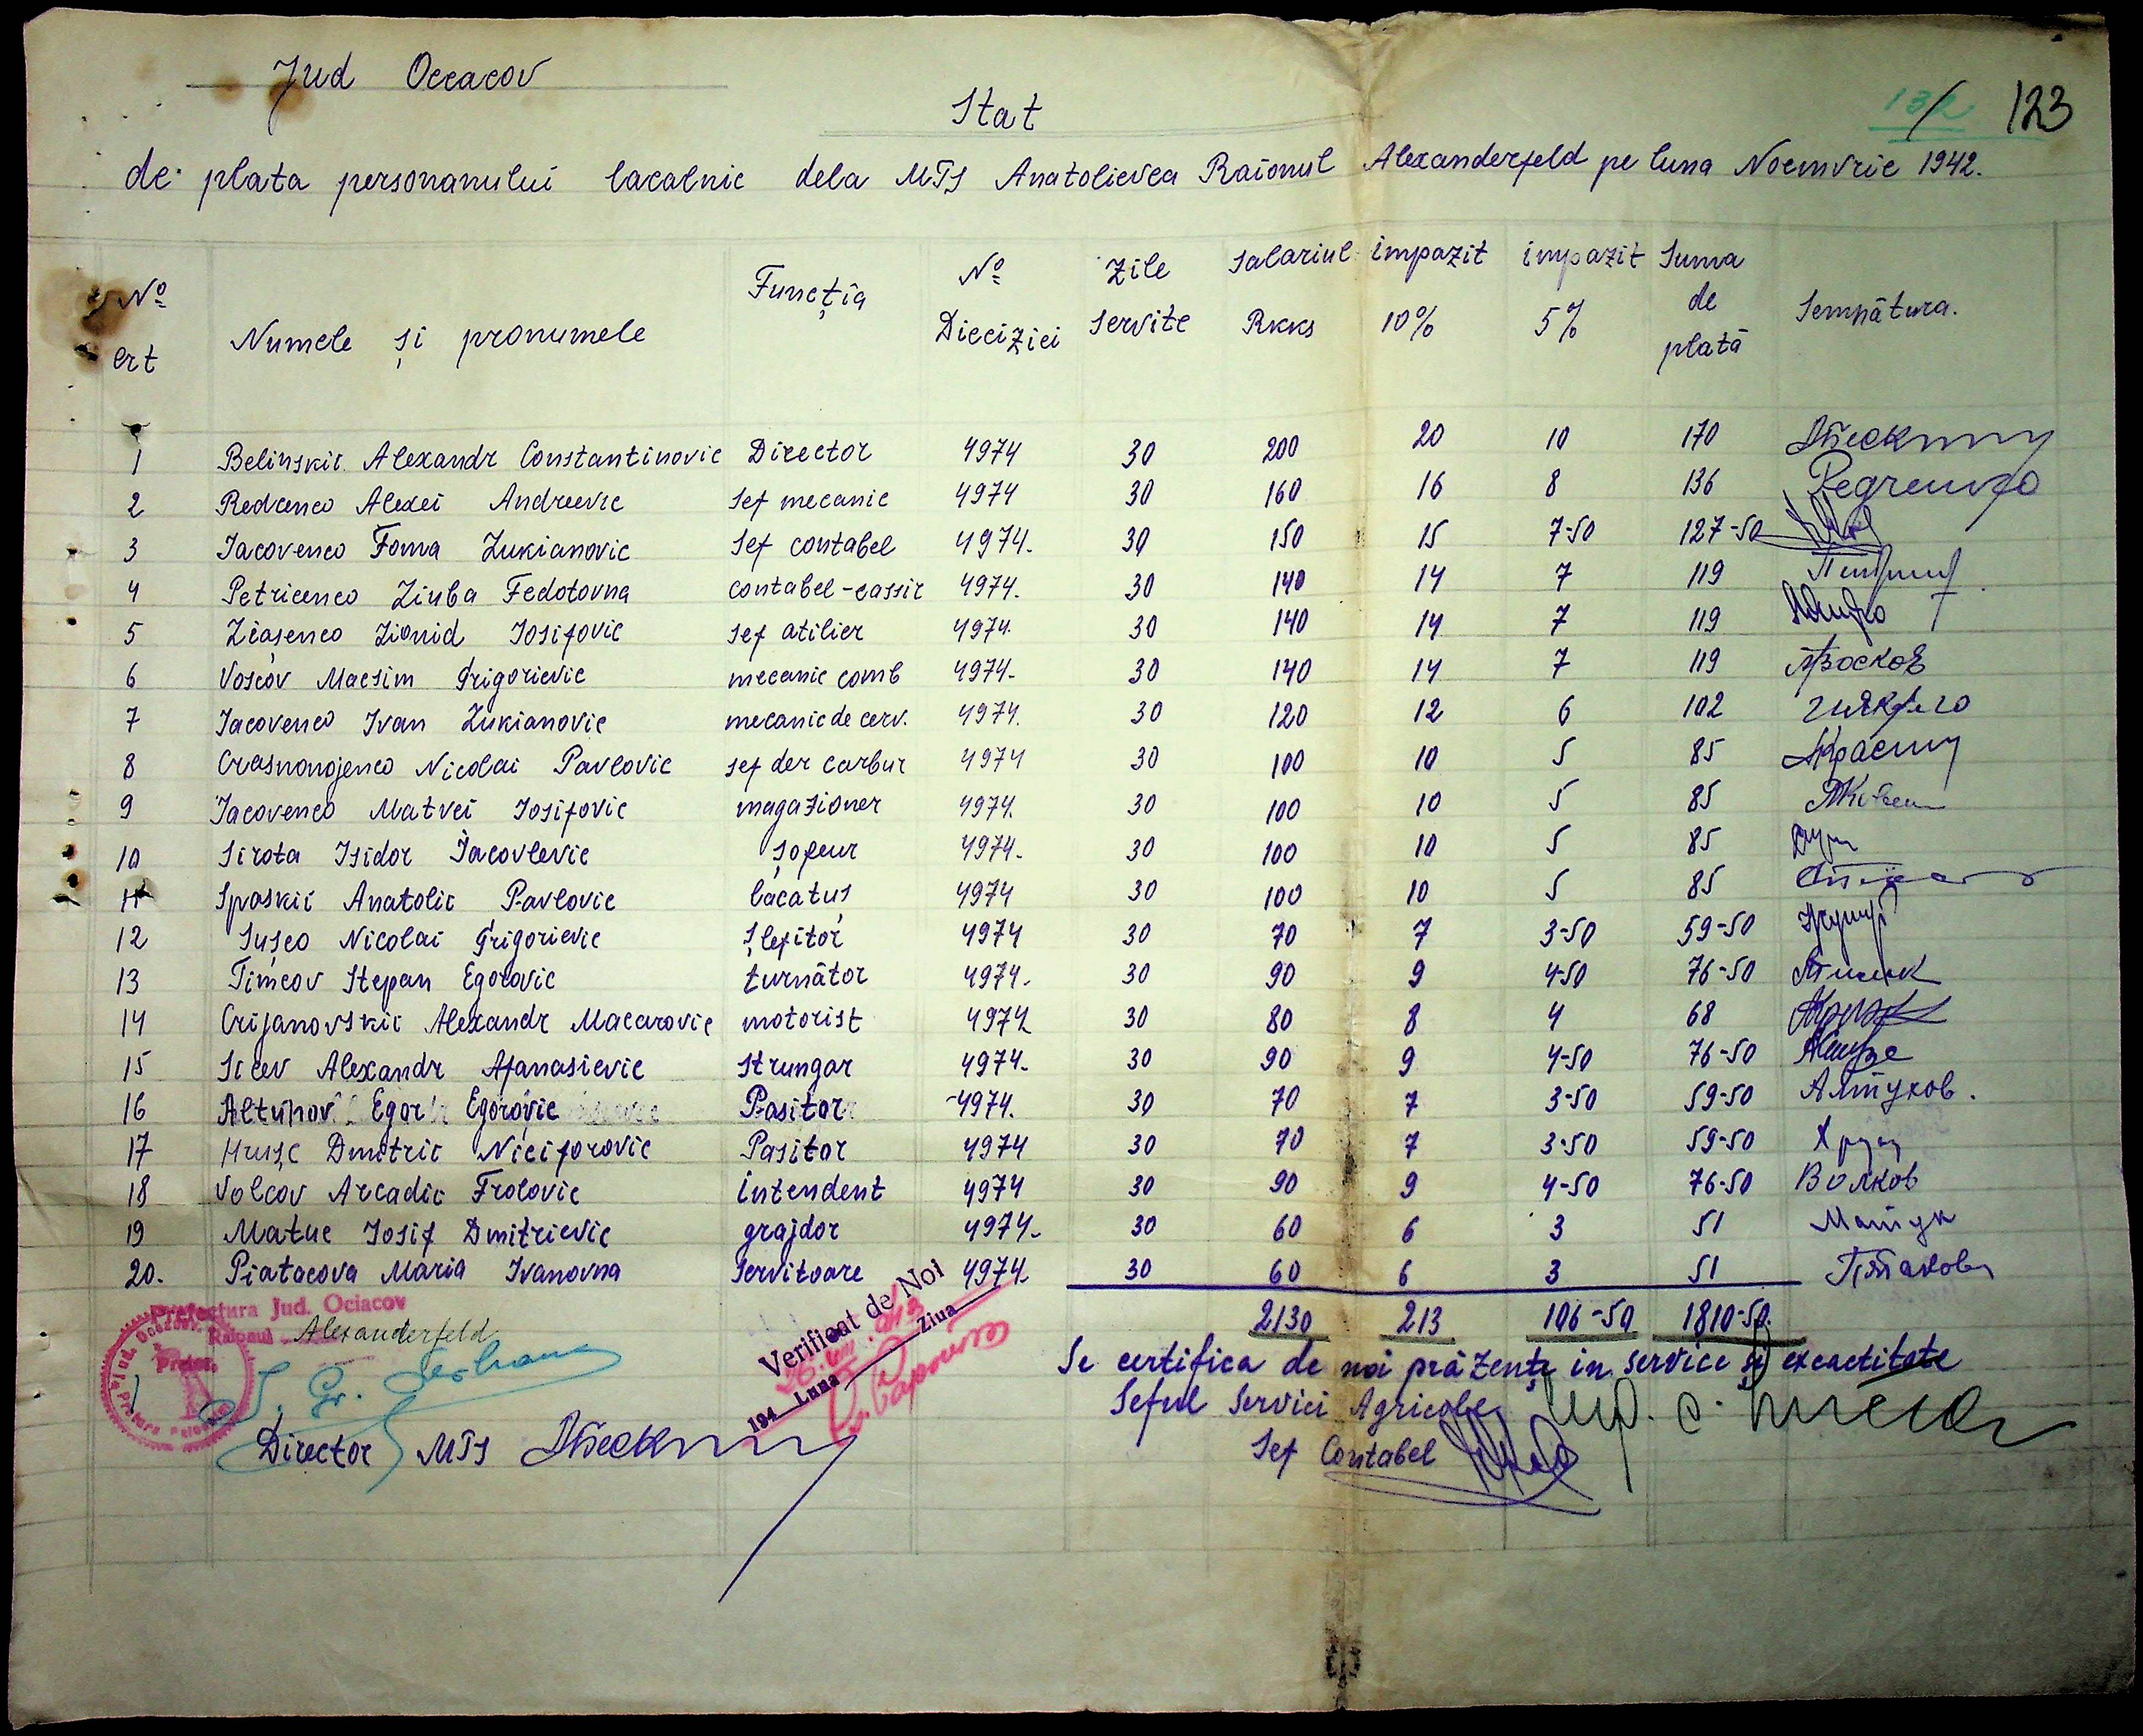 Jud Occacov
Stat
132 / 123
de plata personanului lacalnic dela MTS Anatolievca Raionul Alexanderfeld pe luna Noemvrie 1942.
No crt Numele și pronumele Funcția No Diecizíei Zile servite Salariul Rkks impazit 10% impazit 5% Suma de plată Sempătura.
1 Belinskii Alexandr Constantinovic Director 4974 30 200 20 10 170
2 Redcenco Alexei Andreevic Sef mecanic 4974 30 160 16 8 136
3 Iacovenco Foma Lukianovic Sef contabel 4974. 30 150 15 7-50 127-50
4 Petricenco Liuba Fedotovna contabel-cassir 4974. 30 140 14 7 119
5 Liașenco Lionid Iosifovic sef atilier 4974. 30 140 14 7 119
6 Voscov Macsim Grigorievic mecanic comb 4974- 30 140 14 7 119 Восков
7 Iacovenco Ivan Lukianovic mecanic de cerv. 4974. 30 120 12 6 102
8 Crasnonojenco Nicolai Pavlovic sef der carbur 4974 30 100 10 5 85
9 Iacovenco Matvei Iosifovic magasioner 4974. 30 100 10 5 85
10 Sirota Isidor Iacovlevic șofeur 4974- 30 100 10 5 85
11 Spaskii Anatolic Pavlovic lăcatuș 4974 30 100 10 5 85
12 Sușco Nicolai Grigorievic Șlefitor 4974 30 70 7 3-50 59-50
13 Timcov Stepan Egorovic turnător 4974- 30 90 9 4-50 76-50
14 Crijanovskii Alexandr Macarovic motorist 4974 30 80 8 4 68
15 Sicev Alexandr Afanasievic Strungar 4974- 30 90 9 4-50 76-50
16 Altuhov Egor Egorovic Pasitor -4974. 30 70 7 3-50 59-50 Алтухов.
17 Hrușc Dmitric Niciforovic Pasitor 4974 30 70 7 3-50 59-50
18 Volcov Arcadic Frolovic intendent 4974 30 90 9 4-50 76-50 Волков
19 Matuc Iosif Dmitrievic grajdor 4974- 30 60 6 3 51 Матук
20. Piatacova Maria Ivanovna Servitoare 4974 30 60 6 3 51
2130 213 106-50 1810-50.
Prefectura Jud. Ociacov
Raionul Alexanderfeld
Pretor,
Verificat de Noi
194 Luna Ziua
Se certifica de noi prăzenta in service și exeactitate
Seful Servici Agricole
Sef Contabel
Director MTS